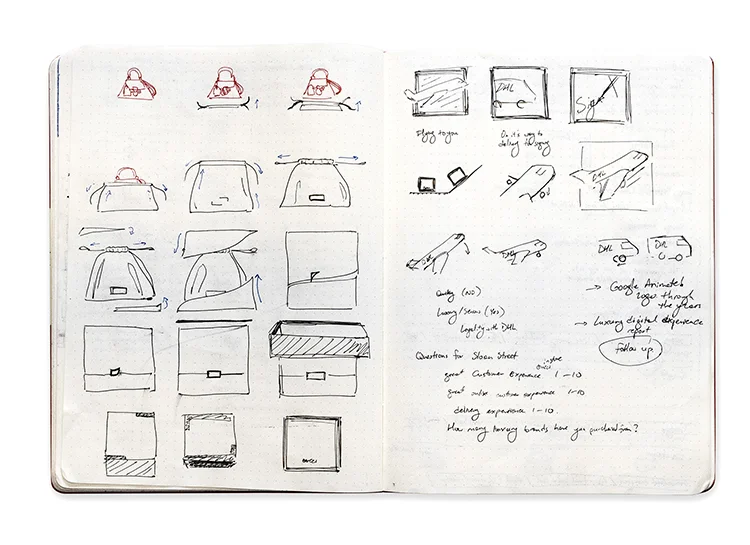 DHL
Sign
Flying to you
On it's way to
delivery
DHL
DHL
DHL
Quality (No)
Luxury/Service (Yes)
Loyalty with DHL
→ Google Animated
logo through
the years
→ Luxury digital experience
report
Follow up
Questions for Sloan Street
great Customer Experience 1-10
great online customer experience 1-10
delivery experience 1-10.
How many luxury brands have you purchased from?